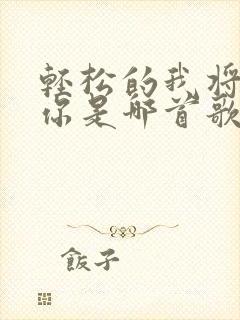 轻松的我将
你是哪首歌
飯子